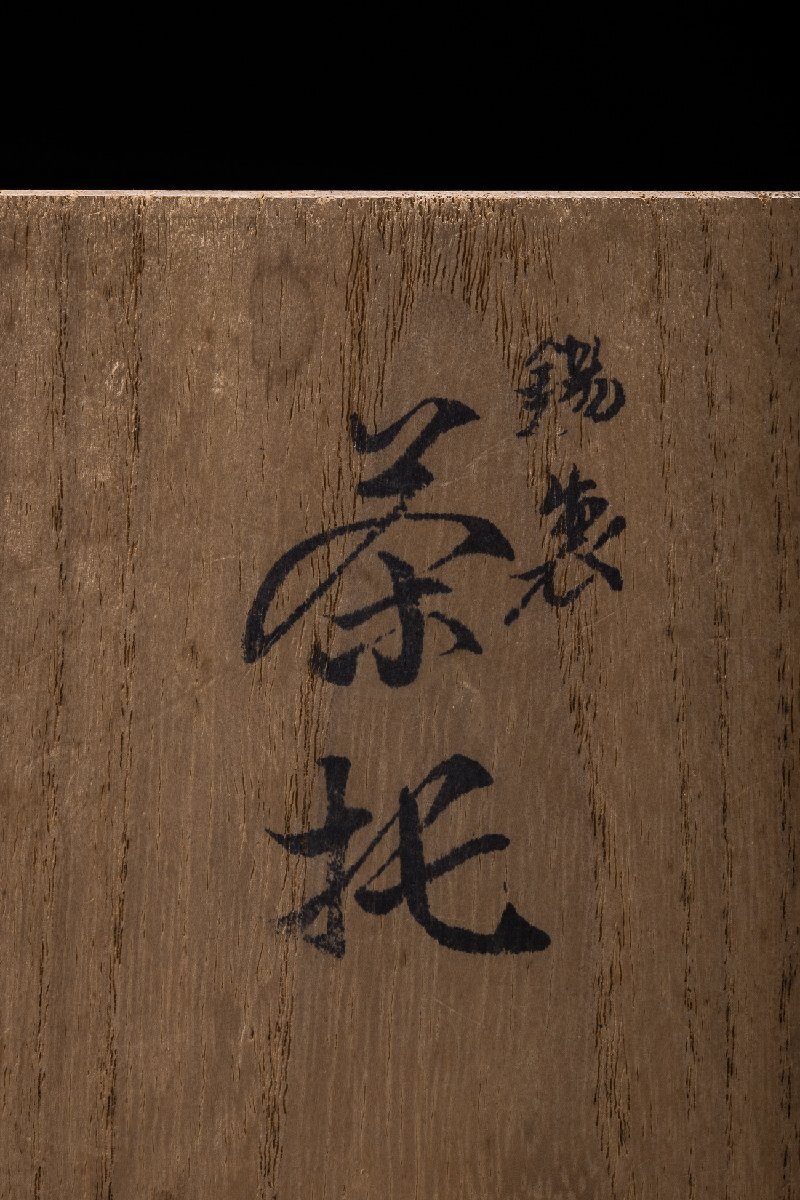 錫製
茶托